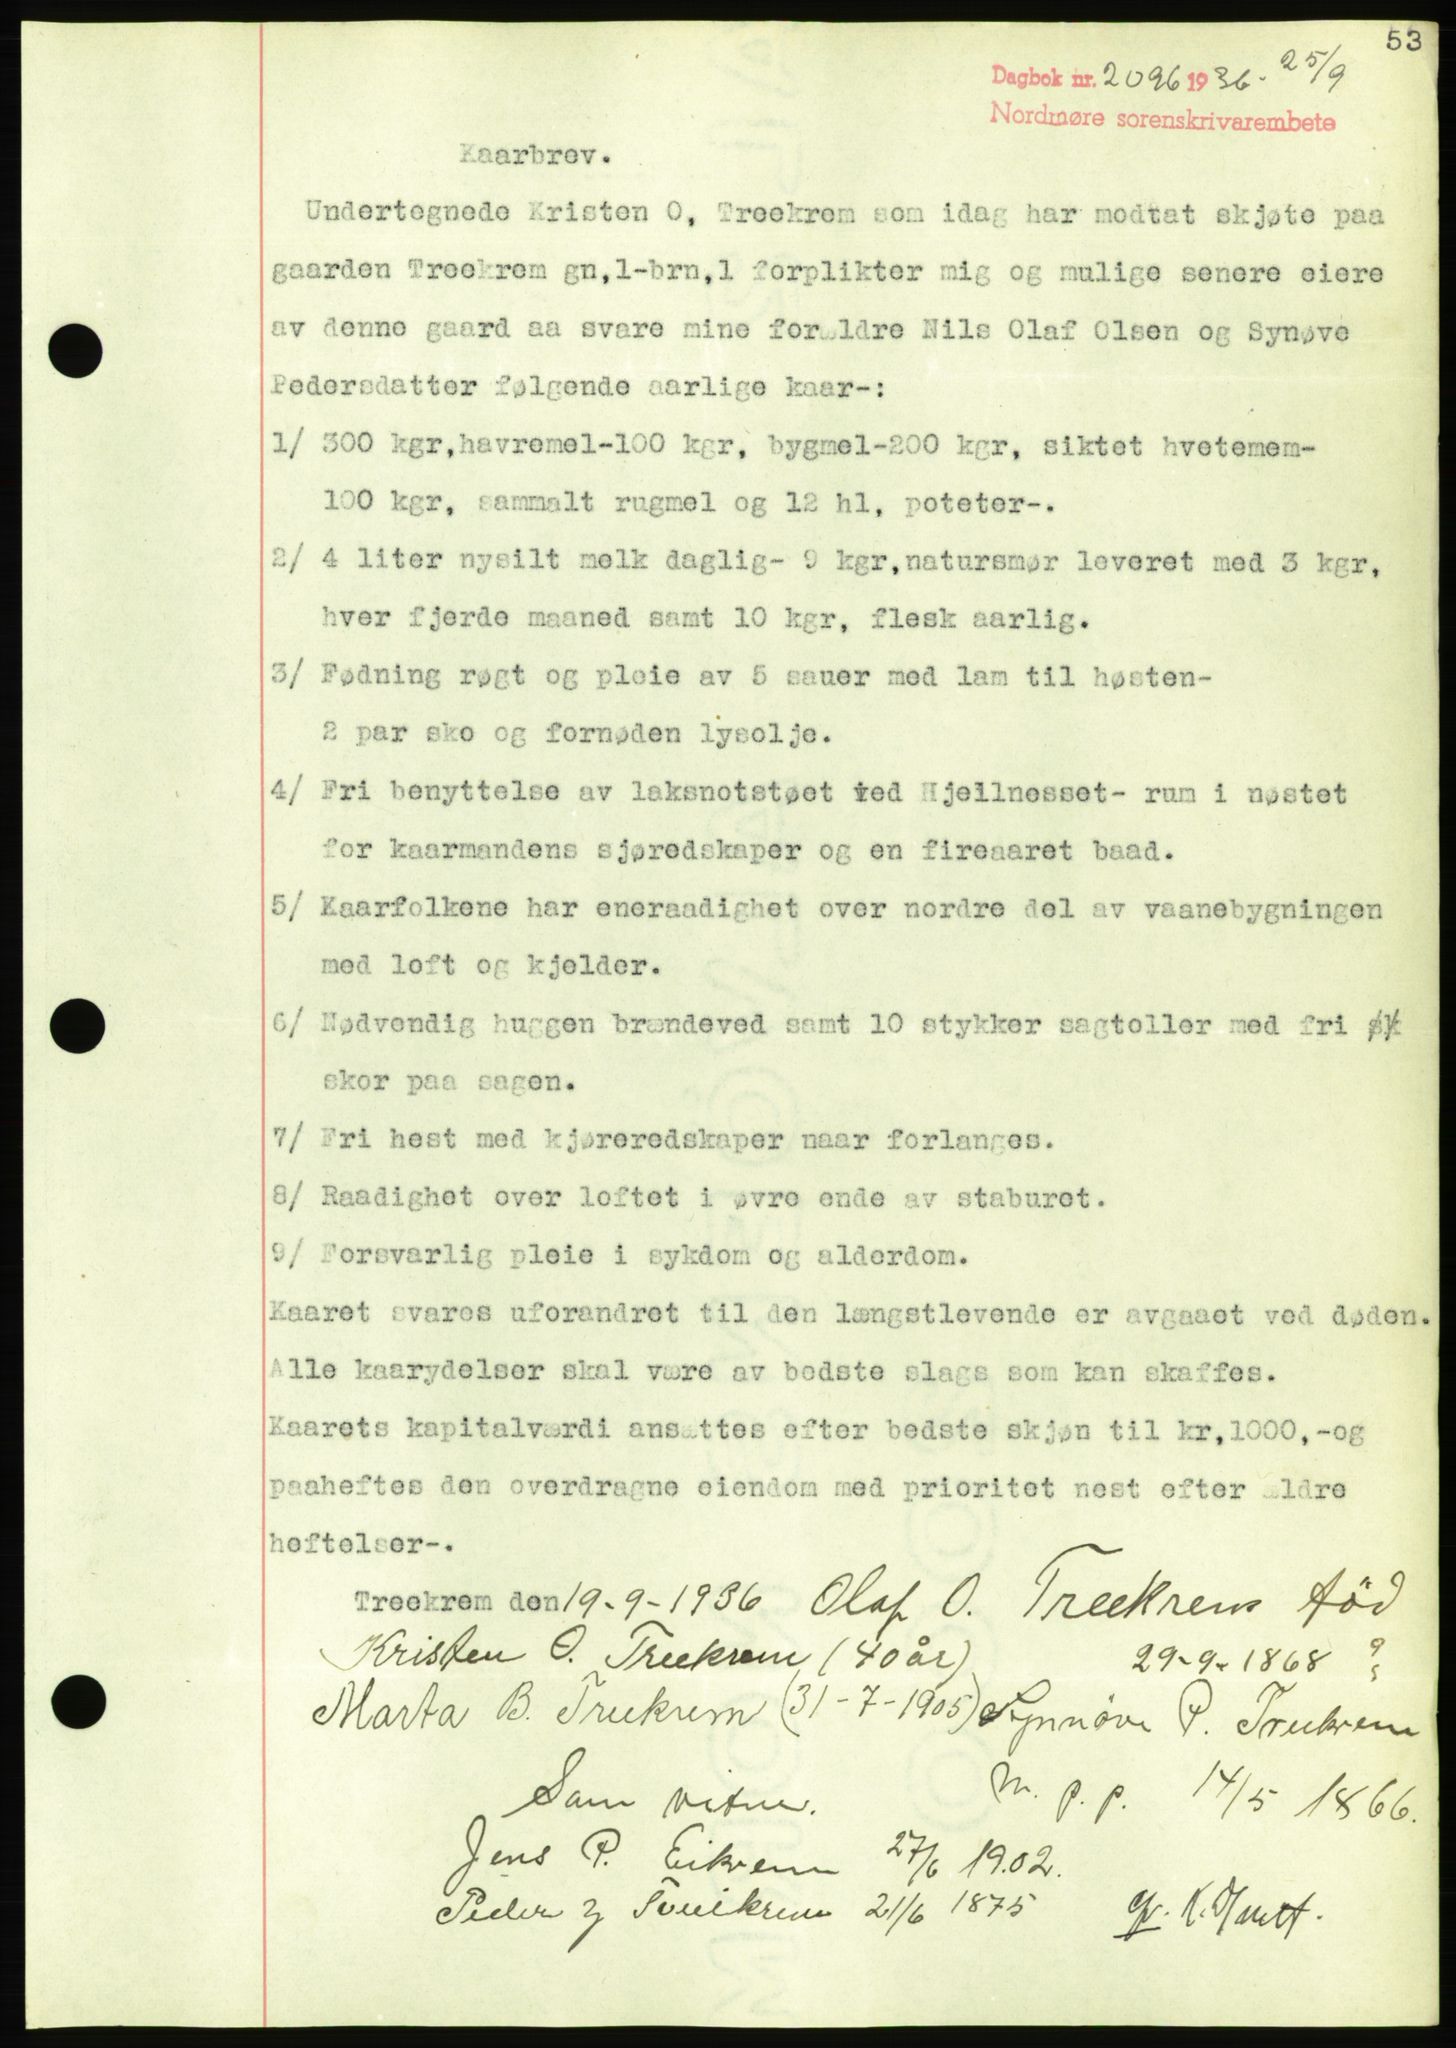 53
Dagbok nr. 2096 1936. 25/9
Nordmøre sorenskrivarembete
Kaarbrev.
Undertegnede Kristen O, Treekrem som idag har modtat skjøte paa
gaarden Treekrem gn,1-brn,1 forplikter mig og mulige senere eiere
av denne gaard aa svare mine forældre Nils Olaf Olsen og Synøve
Pedersdatter følgende aarlige kaar-:
1/ 300 kgr,havremel-100 kgr, bygmel-200 kgr, siktet hvetemem-
100 kgr, sammalt rugmel og 12 hl, poteter-.
2/ 4 liter nysilt melk daglig- 9 kgr,natursmør leveret med 3 kgr,
hver fjerde maaned samt 10 kgr, flesk aarlig.
3/ Fødning røgt og pleie av 5 sauer med lam til høsten-
2 par sko og fornøden lysolje.
4/ Fri benyttelse av laksnotstøet ved Hjellnesset- rum i nøstet
for kaarmandens sjøredskaper og en fireaaret baad.
5/ Kaarfolkene har eneraadighet over nordre del av vaanebygningen
med loft og kjelder.
6/ Nødvendig huggen brændeved samt 10 stykker sagtoller med fri
skor paa sagen.
7/ Fri hest med kjøreredskaper naar forlanges.
8/ Raadighet over loftet i øvre ende av staburet.
9/ Forsvarlig pleie i sykdom og alderdom.
Kaaret svares uforandret til den længstlevende er avgaaet ved døden.
Alle kaarydelser skal være av bedste slags som kan skaffes.
Kaarets kapitalværdi ansættes efter bedste skjøn til kr,1000,-og
paaheftes den overdragne eiendom med prioritet nest efter ældre
heftelser-.
Treekrem den 19-9-1936 Olaf O. Treekrem född
Kristen O. Treekrem (40 år) 29-9-1868 ?
Marta B. Treekrem (31-7-1905) Synnöve P. Treekrem
m. p. p. 14/5 1866.
Som vitner.
Jens P. Eikrem 27/6 1902.
Peder Treekrem 21/6 1875